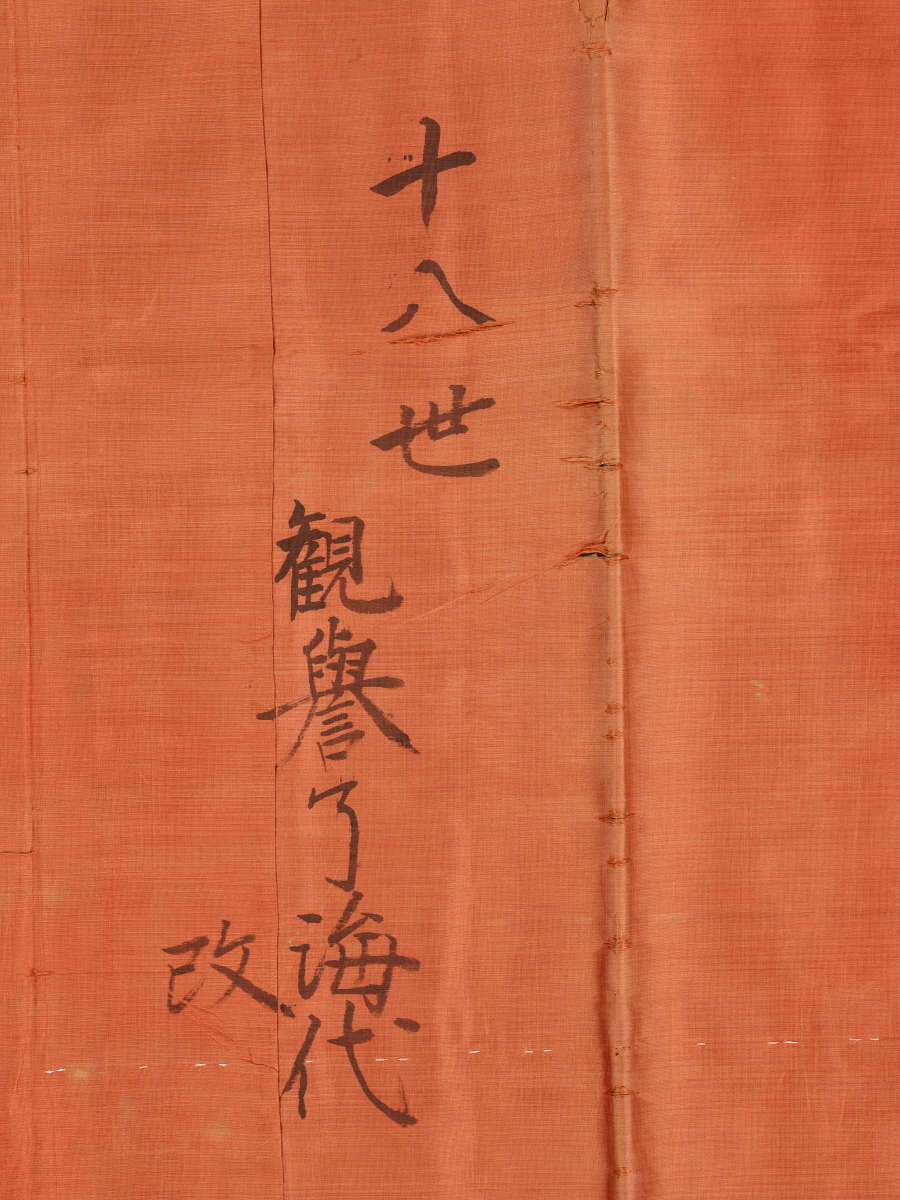 十八世
観譽了海代
改